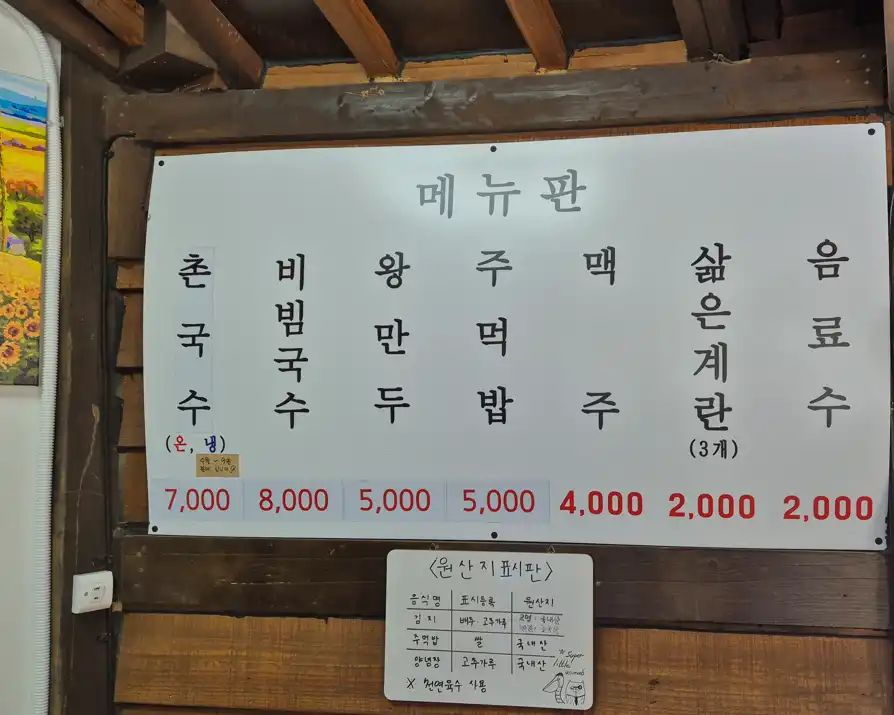 메뉴판
촌국수 비빔국수 왕만두 주먹밥 맥주 삶은계란 음료수
(온, 냉) (3개)
7,000 8,000 5,000 5,000 4,000 2,000 2,000
<원산지 표시판>
음식명 표시등록 원산지
김치 배추·고추가루 국내산
주먹밥 쌀 국내산
양념장 고추가루 국내산
X 천연육수 사용
*Super little